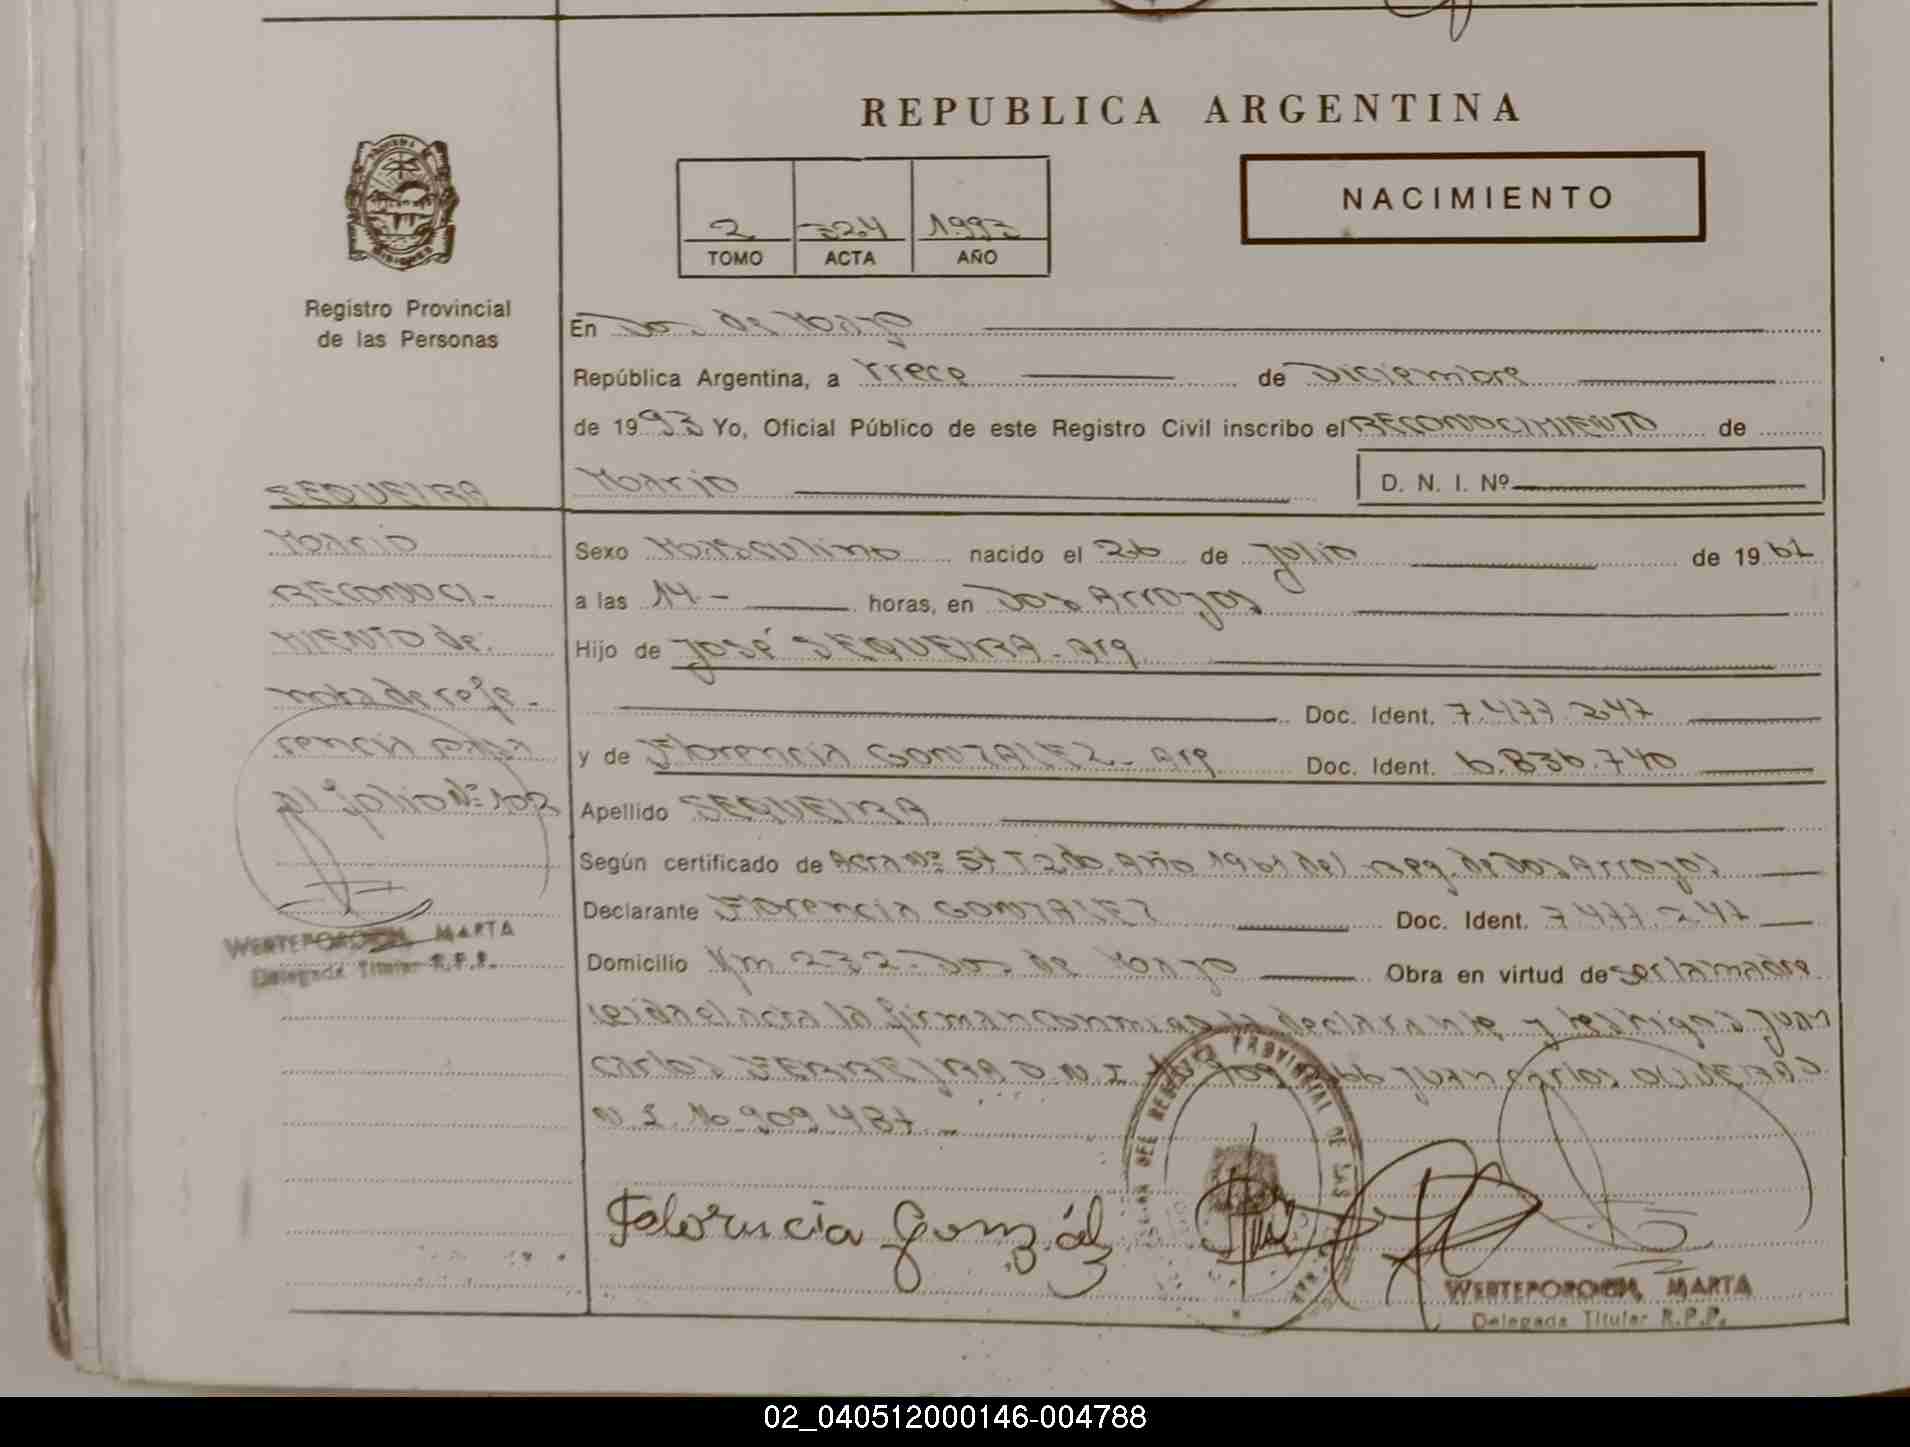 REPUBLICA ARGENTINA
NACIMIENTO
2 324 1993
TOMO ACTA AÑO
Registro Provincial
de las Personas
En Dos de Mayo
República Argentina, a Trece de Diciembre
de 1993 Yo, Oficial Público de este Registro Civil inscribo el RECONOCIMIENTO de
Mario D. N. I. Nº
SEQUEIRA
Mario
RECONOCI-
MIENTO de
nota de refe-
rencia
al folio Nº 102
WERTEPOROCH, MARTA
Delegada Titular R.P.P.
Sexo Masculino nacido el 26 de Julio de 1961
a las 14- horas, en Dos Arroyos
Hijo de José SEQUEIRA - Arg
Doc. Ident. 7.477.247
y de Florencia GONZALEZ - Arg Doc. Ident. 6.836.740
Apellido SEQUEIRA
Según certificado de Acta Nº 57 T 2do. Año 1961 del Reg. de Dos Arroyos
Declarante Florencia GONZALEZ Doc. Ident. 7.477.247
Domicilio Km 272 - Dos de Mayo Obra en virtud de ser la madre
leida el acta la firman conmigo la declarante y testigos Juan
Carlos FERREYRA D.N.I. 909 Juan Carlos OLIVERA D.
N.I. 16.909.487.-
Felorncia Gonzál
DEL REGISTRO PROVINCIAL DE LAS
WERTEPOROCH, MARTA
Delegada Titular R.P.P.
02_040512000146-004788